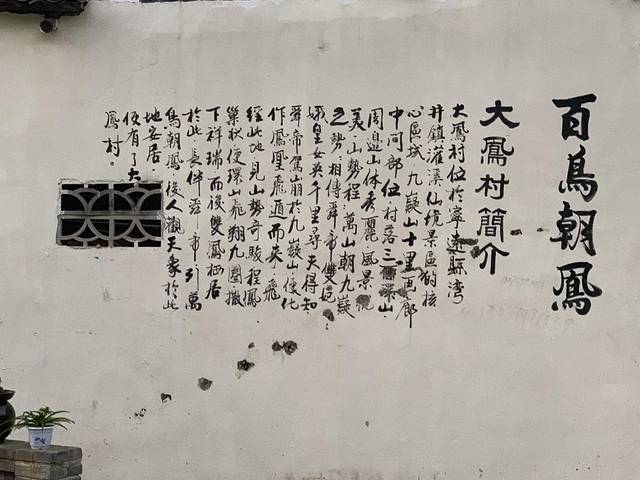 百鳥朝鳳
大鳳村簡介
大鳳村位於寧遠縣灣
井鎮灌溪仙境景區的核
心區域，九嶷山十里画廊
中间部位，村落三面環山，
周邊山体秀麗，風景優
美，山勢程萬山朝九嶷
之势，相傳舜帝雙妃
娥皇女英千里尋夫得知
舜帝駕崩於九嶷山便化
作鳳凰飛遁而來，飛
經此地見山勢奇駿程鳳
巢狀便環山飛翔九圈撒
下祥瑞而後雙鳳栖居
於此，長伴舜帝引萬
鳥朝鳳，後人觀天象於此
地安居
便有了大
鳳村。